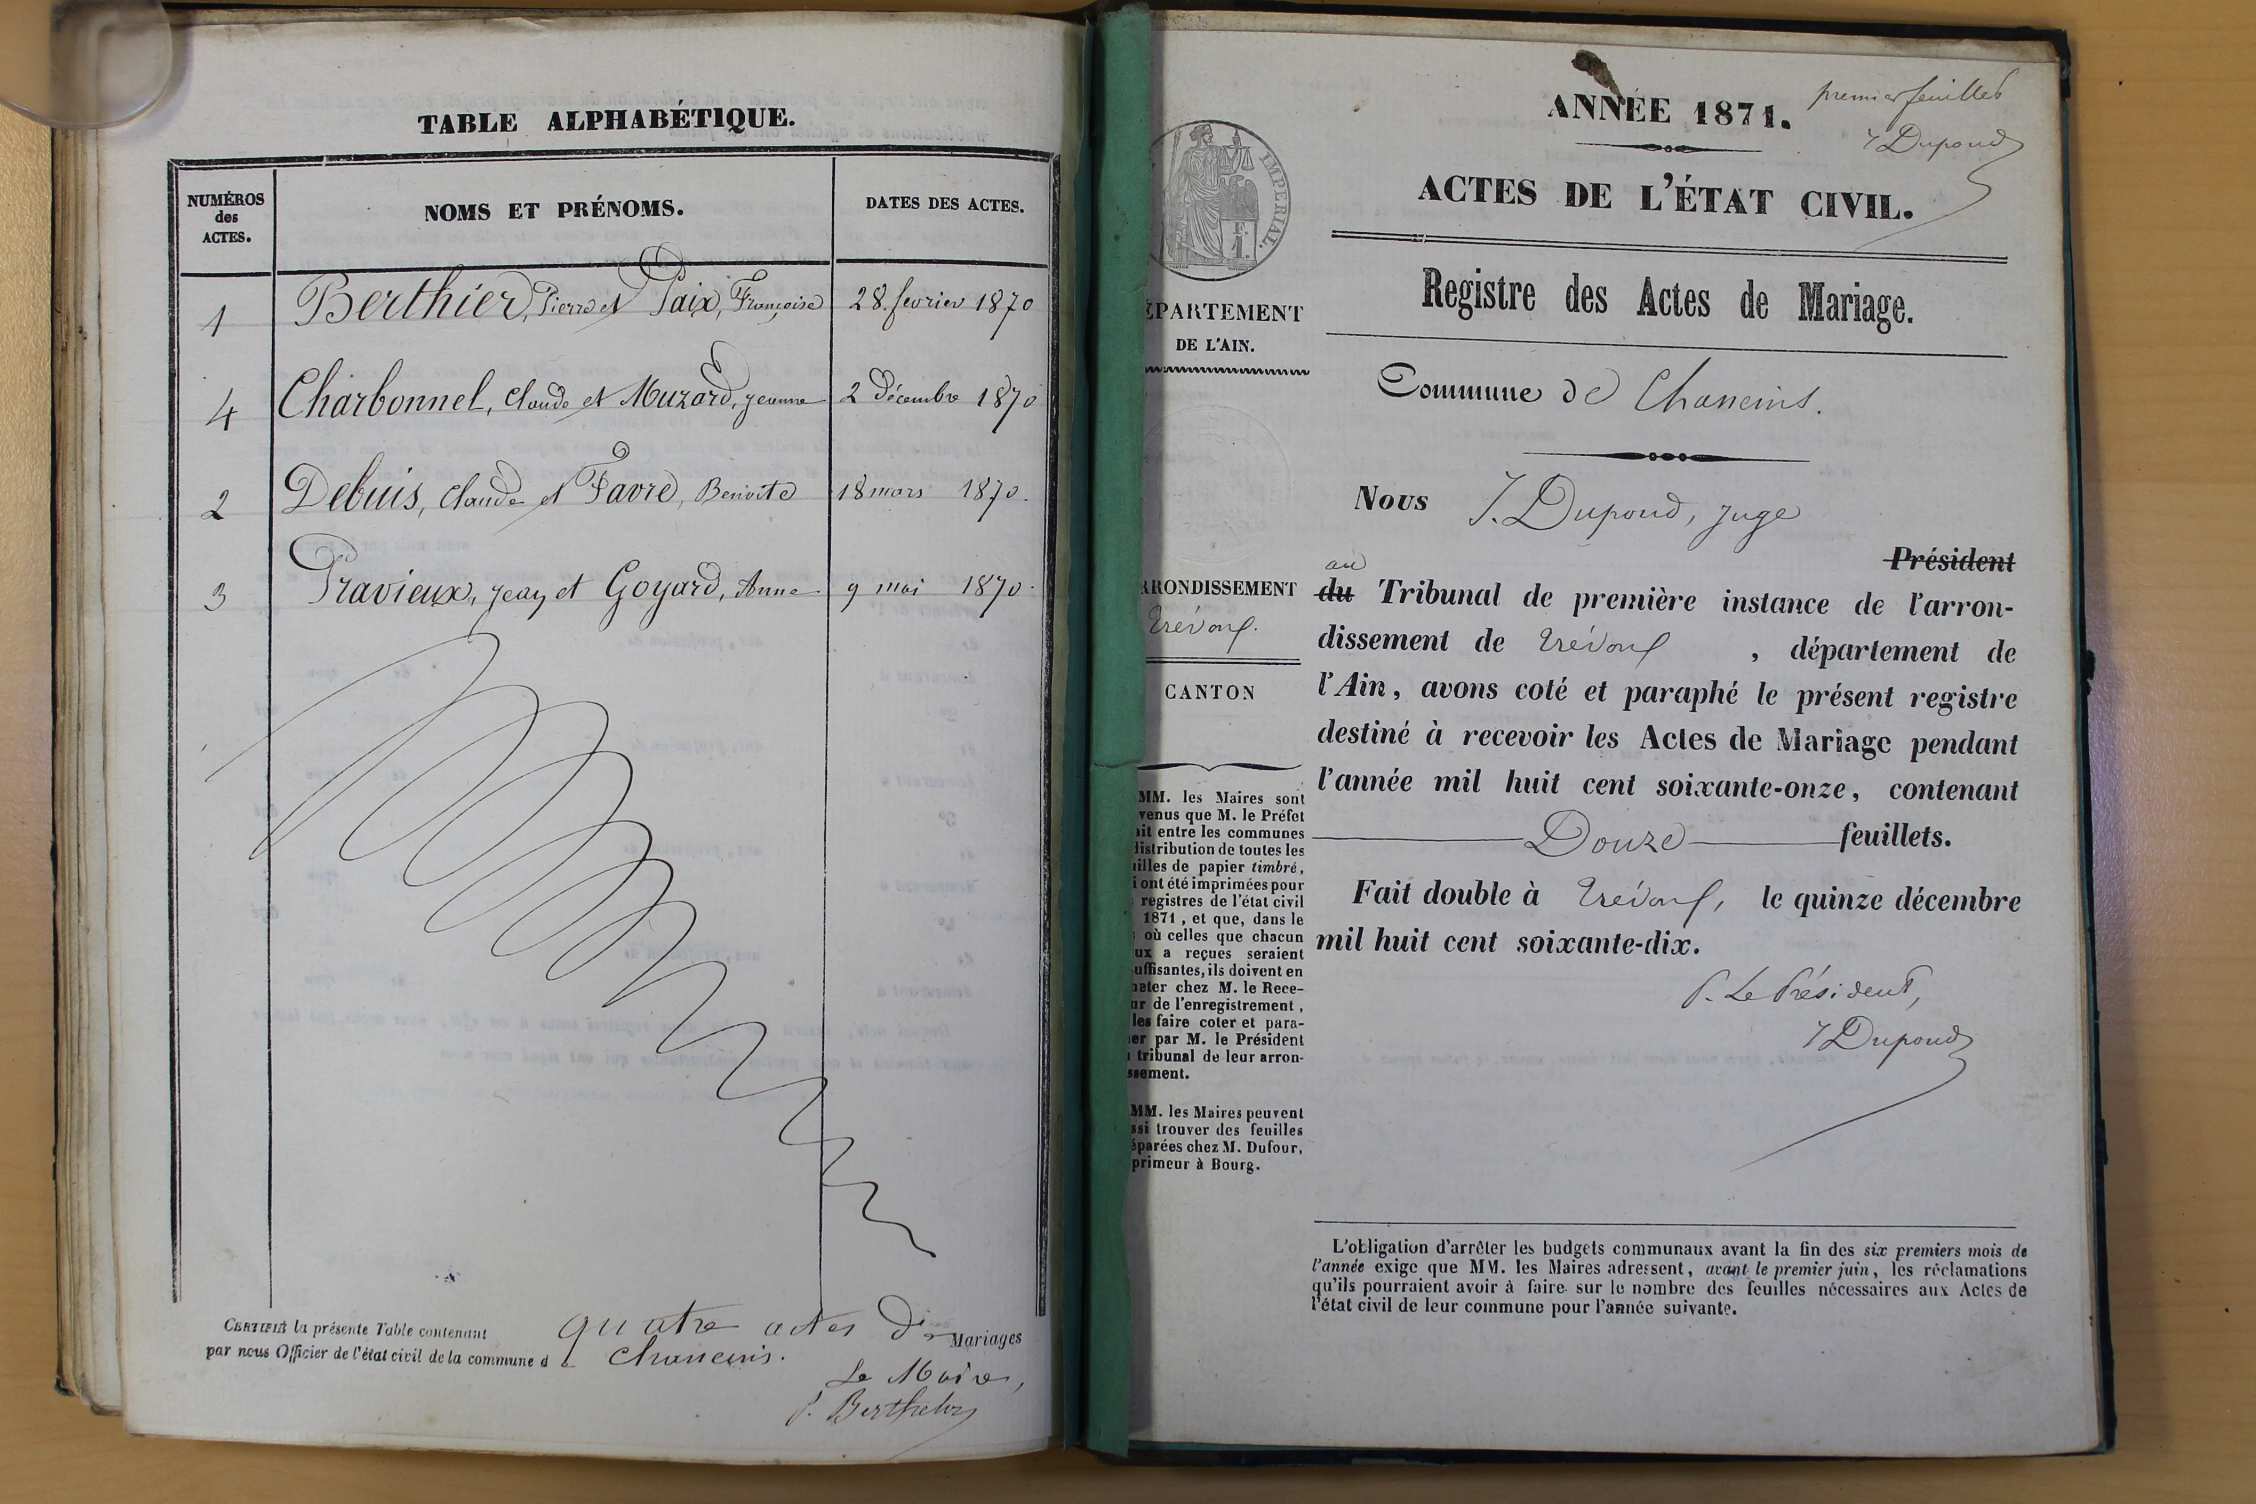 TABLE ALPHABÉTIQUE.
NUMÉROS
des
ACTES.
NOMS ET PRÉNOMS.
DATES DES ACTES.
1 Berthier, Pierre et Paix, Françoise 28 fevrier 1870
4 Charbonnel, Claude et Muzard, jeanne 2 Décembre 1870
2 Debuis, Claude et Favre, Benoite 18 mars 1870.
3 Pravieux, jean et Goyard, Anne 9 mai 1870.
CERTIFIÉ la présente Table contenant quatre actes de Mariages
par nous Officier de l'état civil de la commune d e Chaneins.
Le Maire,
P. Berthelon
premier feuillet
J Dupond
ANNÉE 1871.
ACTES DE L'ÉTAT CIVIL.
IMPERIAL.
F.
1.
Registre des Actes de Mariage.
ÉPARTEMENT
DE L'AIN.
Commune de Chaneins.
Nous J. Dupond, juge
Président
au
RRONDISSEMENT
Trévoux.
CANTON
du Tribunal de première instance de l'arron-
dissement de Trévoux, département de
l'Ain, avons coté et paraphé le présent registre
destiné à recevoir les Actes de Mariage pendant
l'année mil huit cent soixante-onze, contenant
Douze feuillets.
Fait double à Trévoux, le quinze décembre
mil huit cent soixante-dix.
P. Le Président,
J Dupond
MM. les Maires sont
venus que M. le Préfet
ait entre les communes
distribution de toutes les
uilles de papier timbré,
i ont été imprimées pour
registres de l'état civil
1871, et que, dans le
où celles que chacun
ux a reçues seraient
uffisantes, ils doivent en
heter chez M. le Rece-
ur de l'enregistrement,
les faire coter et para-
er par M. le Président
tribunal de leur arron-
ssement.
MM. les Maires peuvent
ssi trouver des feuilles
éparées chez M. Dufour,
primeur à Bourg.
L'obligation d'arrêter les budgets communaux avant la fin des six premiers mois de
l'année exige que MM. les Maires adressent, avant le premier juin, les réclamations
qu'ils pourraient avoir à faire sur le nombre des feuilles nécessaires aux Actes de
l'état civil de leur commune pour l'année suivante.